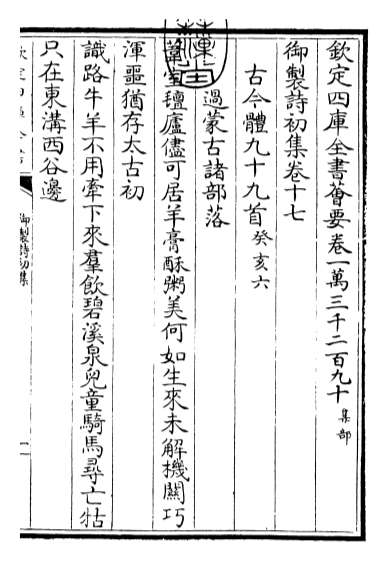 欽定四庫全書薈要卷一萬三千二百九十集部
御製詩初集卷十七
古今體九十九首癸亥六
過蒙古諸部落
葦室氊廬儘可居羊膏酥粥美何如生來未解機關巧
渾噩猶存太古初
識路牛羊不用牽下來羣飲碧溪泉兒童騎馬尋亡牯
只在東溝西谷邊
御製詩初集